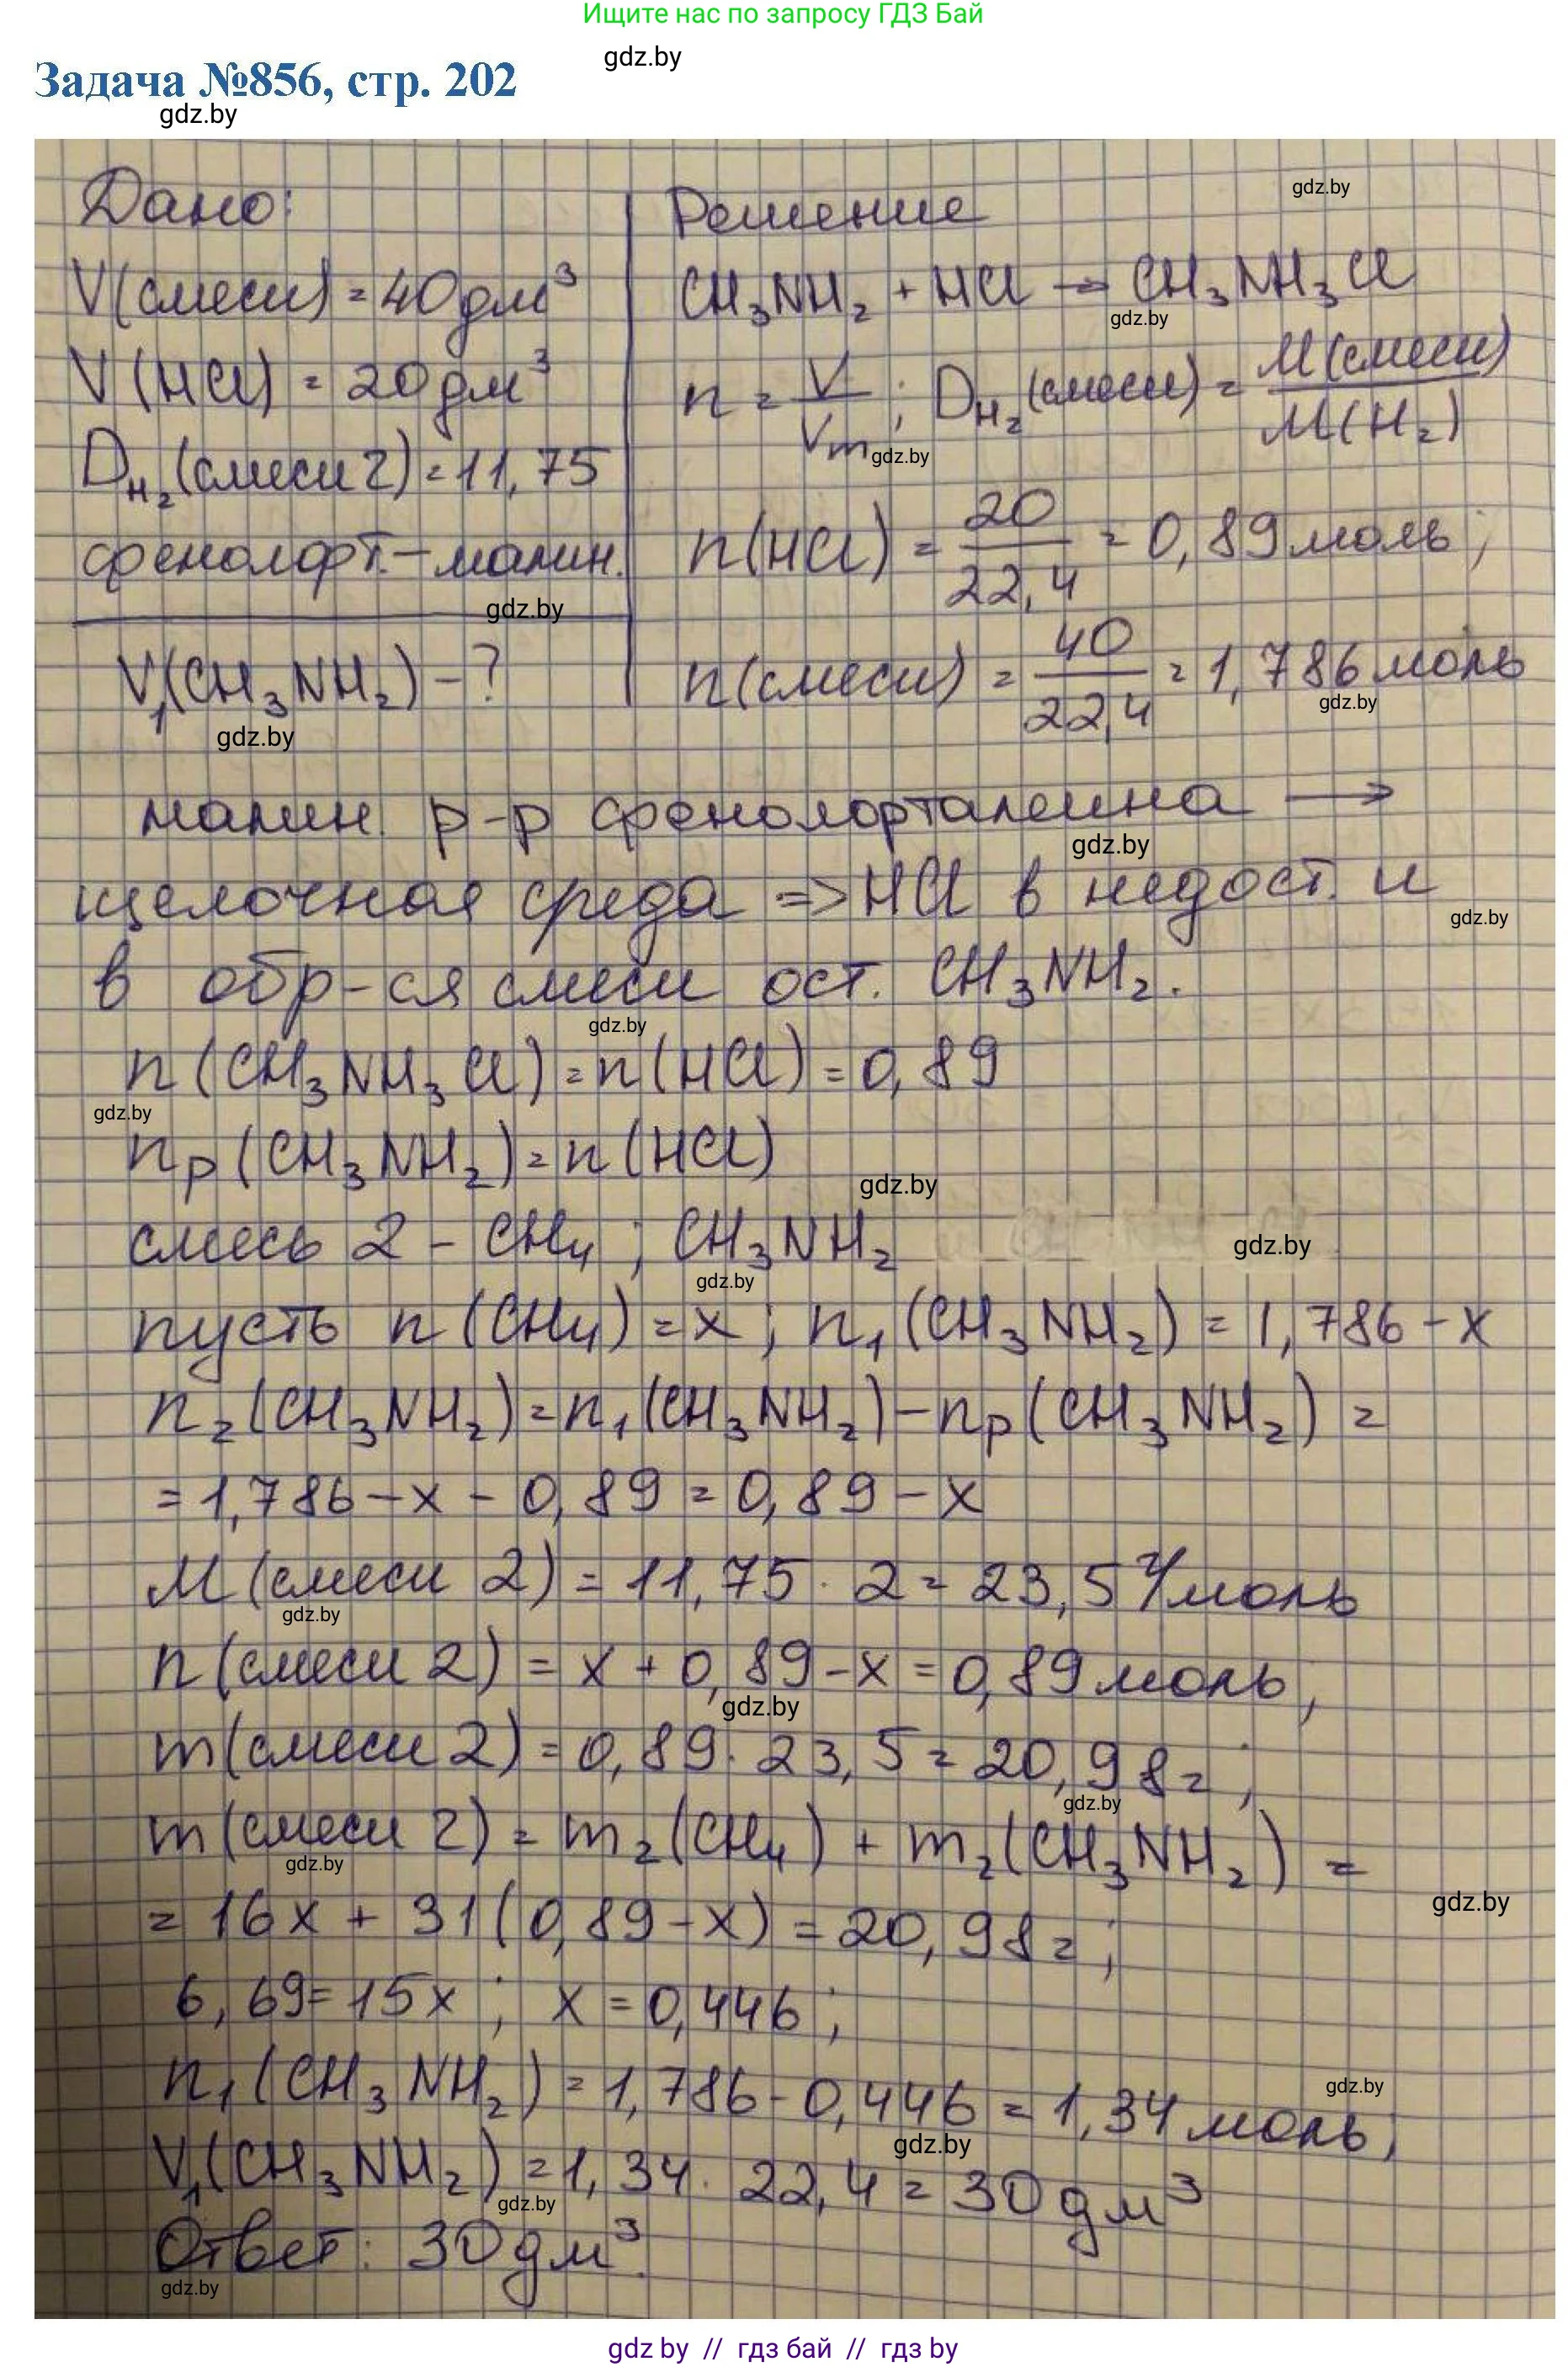 Ищите нас по запросу ГДЗ Бай
gdz.by
Задача №856, стр. 202
gdz.by
Дано:
V(смеси) = 40 дм³
V(HCl) = 20 дм³
D_H₂(смеси 2) = 11,75
фенолфт. – малин.
gdz.by
V₁(CH₃NH₂) – ?
gdz.by
Решение
gdz.by
CH₃NH₂ + HCl → CH₃NH₃Cl
gdz.by
n = V/Vm; D_H₂(смеси) = M(смеси)/M(H₂)
gdz.by
n(HCl) = 20/22,4 = 0,89 моль;
n(смеси) = 40/22,4 = 1,786 моль
gdz.by
малин. р-р фенолфталеина →
gdz.by
щелочная среда => HCl в недост. и
gdz.by
в обр-ся смеси ост. CH₃NH₂.
gdz.by
n(CH₃NH₃Cl) = n(HCl) = 0,89
gdz.by
nр(CH₃NH₂) = n(HCl)
gdz.by
смесь 2 – CH₄; CH₃NH₂
gdz.by
gdz.by
пусть n(CH₄) = x; n₁(CH₃NH₂) = 1,786 – x
n₂(CH₃NH₂) = n₁(CH₃NH₂) – nр(CH₃NH₂) =
= 1,786 – x – 0,89 = 0,89 – x
M(смеси 2) = 11,75 · 2 = 23,5 г/моль
gdz.by
n(смеси 2) = x + 0,89 – x = 0,89 моль;
gdz.by
m(смеси 2) = 0,89 · 23,5 = 20,98 г;
gdz.by
m(смеси 2) = m₂(CH₄) + m₂(CH₃NH₂) =
gdz.by
gdz.by
= 16x + 31(0,89 – x) = 20,98 г;
6,69 = 15x; x = 0,446;
n₁(CH₃NH₂) = 1,786 – 0,446 = 1,34 моль;
gdz.by
gdz.by
V₁(CH₃NH₂) = 1,34 · 22,4 = 30 дм³
gdz.by
Ответ: 30 дм³.
gdz.by
gdz by // гдз бай // гдз by